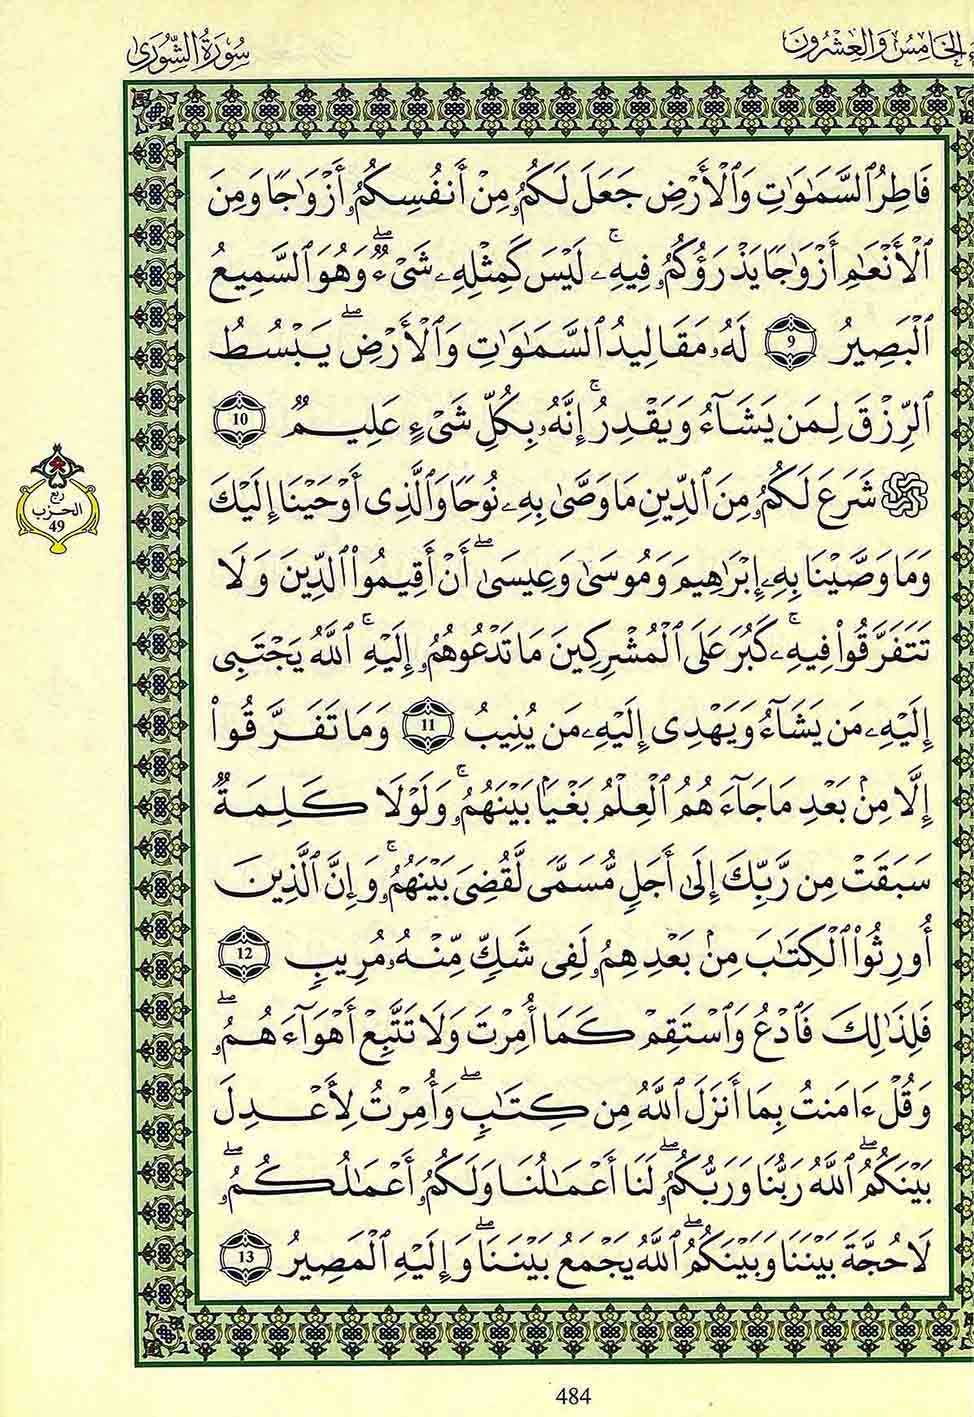 الخامس والعشرون
سورة الشورى
فَاطِرُ السَّمَٰوَٰتِ وَالْأَرْضِ جَعَلَ لَكُمُۥ مِنْ أَنفُسِكُمُۥ أَزْوَٰجًا وَمِنَ
الْأَنْعَٰمِ أَزْوَٰجًا يَذْرَؤُكُمُۥ فِيهِۦۚ لَيْسَ كَمِثْلِهِۦ شَىْءٌۖ وَهُوَ السَّمِيعُ
الْبَصِيرُ 9 لَهُۥ مَقَالِيدُ السَّمَٰوَٰتِ وَالْأَرْضِۖ يَبْسُطُ
الرِّزْقَ لِمَن يَشَآءُ وَيَقْدِرُۚ إِنَّهُۥ بِكُلِّ شَىْءٍ عَلِيمٌ 10
شَرَعَ لَكُمُۥ مِنَ الدِّينِ مَا وَصَّىٰ بِهِۦ نُوحًا وَالَّذِى أَوْحَيْنَا إِلَيْكَ
وَمَا وَصَّيْنَا بِهِۦ إِبْرَٰهِيمَ وَمُوسَىٰ وَعِيسَىٰۖ أَنْ أَقِيمُوا۟ الدِّينَ وَلَا
تَتَفَرَّقُوا۟ فِيهِۦۚ كَبُرَ عَلَى الْمُشْرِكِينَ مَا تَدْعُوهُمُۥ إِلَيْهِۦۚ اللَّهُ يَجْتَبِى
إِلَيْهِۦ مَن يَشَآءُ وَيَهْدِى إِلَيْهِۦ مَن يُنِيبُ 11 وَمَا تَفَرَّقُوا۟
إِلَّا مِنۢ بَعْدِ مَا جَآءَهُمُ الْعِلْمُ بَغْيًۢا بَيْنَهُمُۥۚ وَلَوْلَا كَلِمَةٌ
سَبَقَتْ مِن رَّبِّكَ إِلَىٰ أَجَلٍ مُّسَمًّى لَّقُضِىَ بَيْنَهُمُۥۚ وَإِنَّ الَّذِينَ
أُورِثُوا۟ الْكِتَٰبَ مِنۢ بَعْدِهِمُۥ لَفِى شَكٍّ مِّنْهُۥ مُرِيبٍ 12
فَلِذَٰلِكَ فَادْعُ وَاسْتَقِمْ كَمَا أُمِرْتَ وَلَا تَتَّبِعْ أَهْوَآءَهُمُۥۖ
وَقُلْ ءَامَنتُ بِمَا أَنزَلَ اللَّهُ مِن كِتَٰبٍۖ وَأُمِرْتُ لِأَعْدِلَ
بَيْنَكُمُۖ اللَّهُ رَبُّنَا وَرَبُّكُمُۥۖ لَنَا أَعْمَٰلُنَا وَلَكُمُۥ أَعْمَٰلُكُمُۥۖ
لَا حُجَّةَ بَيْنَنَا وَبَيْنَكُمُۖ اللَّهُ يَجْمَعُ بَيْنَنَاۖ وَإِلَيْهِ الْمَصِيرُ 13
ربع
الحزب
49
484